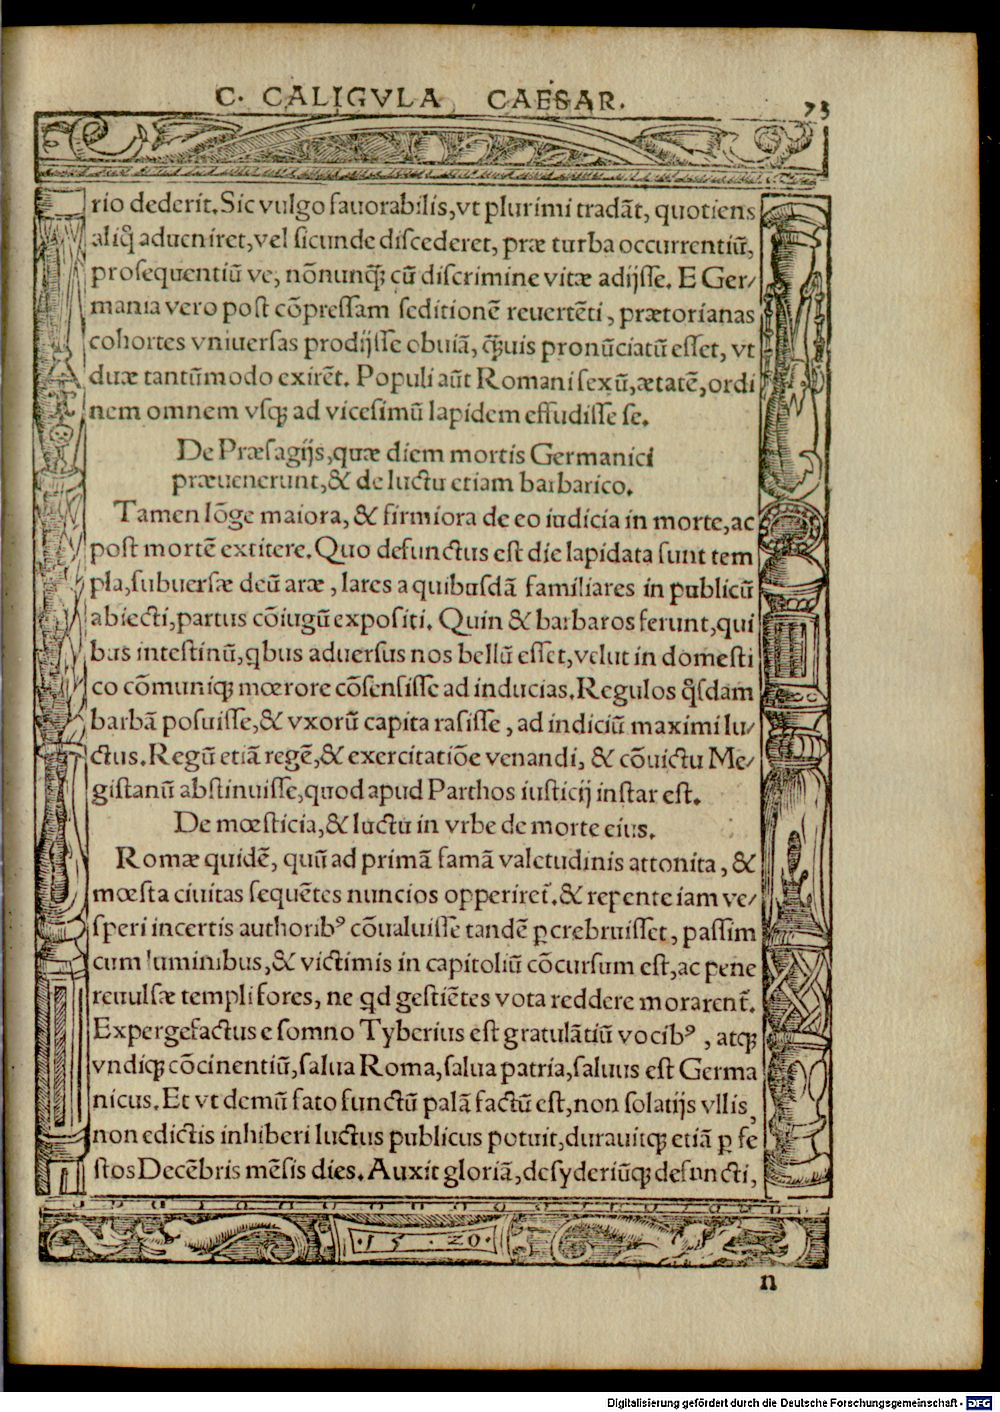 C. CALIGVLA CAESAR.
73
rio dederit. Sic vulgo fauorabilis, vt plurimi tradãt, quotiens
aliq̃ adueniret, vel sicunde discederet, præ turba occurrentiũ,
prosequentiũ ve, nõnunq̃ꝫ cũ discrimine vitæ adijsse. E Ger/
mania vero post cõpressam seditionẽ reuertẽti, prætorianas
cohortes vniuersas prodijsse obuiã, q̃ꝫuis pronũciatũ esset, vt
duæ tantũmodo exirẽt. Populi aũt Romani sexũ, ætatẽ, ordi
nem omnem vsqꝫ ad vicesimũ lapidem effudisse se.
De Præsagijs, quæ diem mortis Germanici
præuenerunt, & de luctu etiam barbarico.
Tamen lõge maiora, & firmiora de eo iudicia in morte, ac
post mortẽ extitere. Quo defunctus est die lapidata sunt tem
pla, subuersæ deũ aræ, lares a quibusdã familiares in publicũ
abiecti, partus cõiugũ expositi. Quin & barbaros ferunt, qui
bus intestinũ, qbus aduersus nos bellũ esset, velut in domesti
co cõmuniqꝫ mœrore cõsensisse ad inducias. Regulos q̃sdam
barbã posuisse, & vxorũ capita rasisse, ad indiciũ maximi lu/
ctus. Regũ etiã regẽ, & exercitatiõe venandi, & cõuictu Me/
gistanũ abstinuisse, quod apud Parthos iusticij instar est.
De mœsticia, & luctu in vrbe de morte eius.
Romæ quidẽ, quũ ad primã famã valetudinis attonita, &
mœsta ciuitas sequẽtes nuncios opperiret̃. & repente iam ve/
speri incertis authoribꝰ cõualuisse tandẽ ꝑcrebruisset, passim
cum luminibus, & victimis in capitoliũ cõcursum est, ac pene
reuulsæ templi fores, ne qd gestiẽtes vota reddere morarent̃.
Expergefactus e somno Tyberius est gratulãtiũ vocibꝰ, atqꝫ
vndiqꝫ cõcinentiũ, salua Roma, salua patria, saluus est Germa
nicus. Et vt demũ fato functũ palã factũ est, non solatijs vllis,
non edictis inhiberi luctus publicus potuit, durauitqꝫ etiã ꝑ fe
stos Decẽbris mẽsis dies. Auxit gloriã, desyderiũqꝫ defuncti,
·15·20·
n
Digitalisierung gefördert durch die Deutsche Forschungsgemeinschaft - DFG